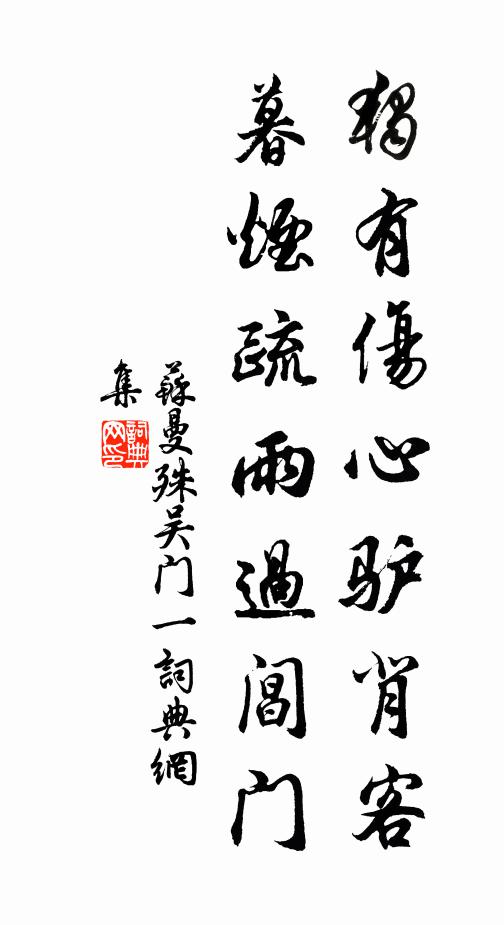 独有傷心驴肖客
暮煙疏雨過閶门
蘇曼殊吴门一詞典網
集
詞典网印